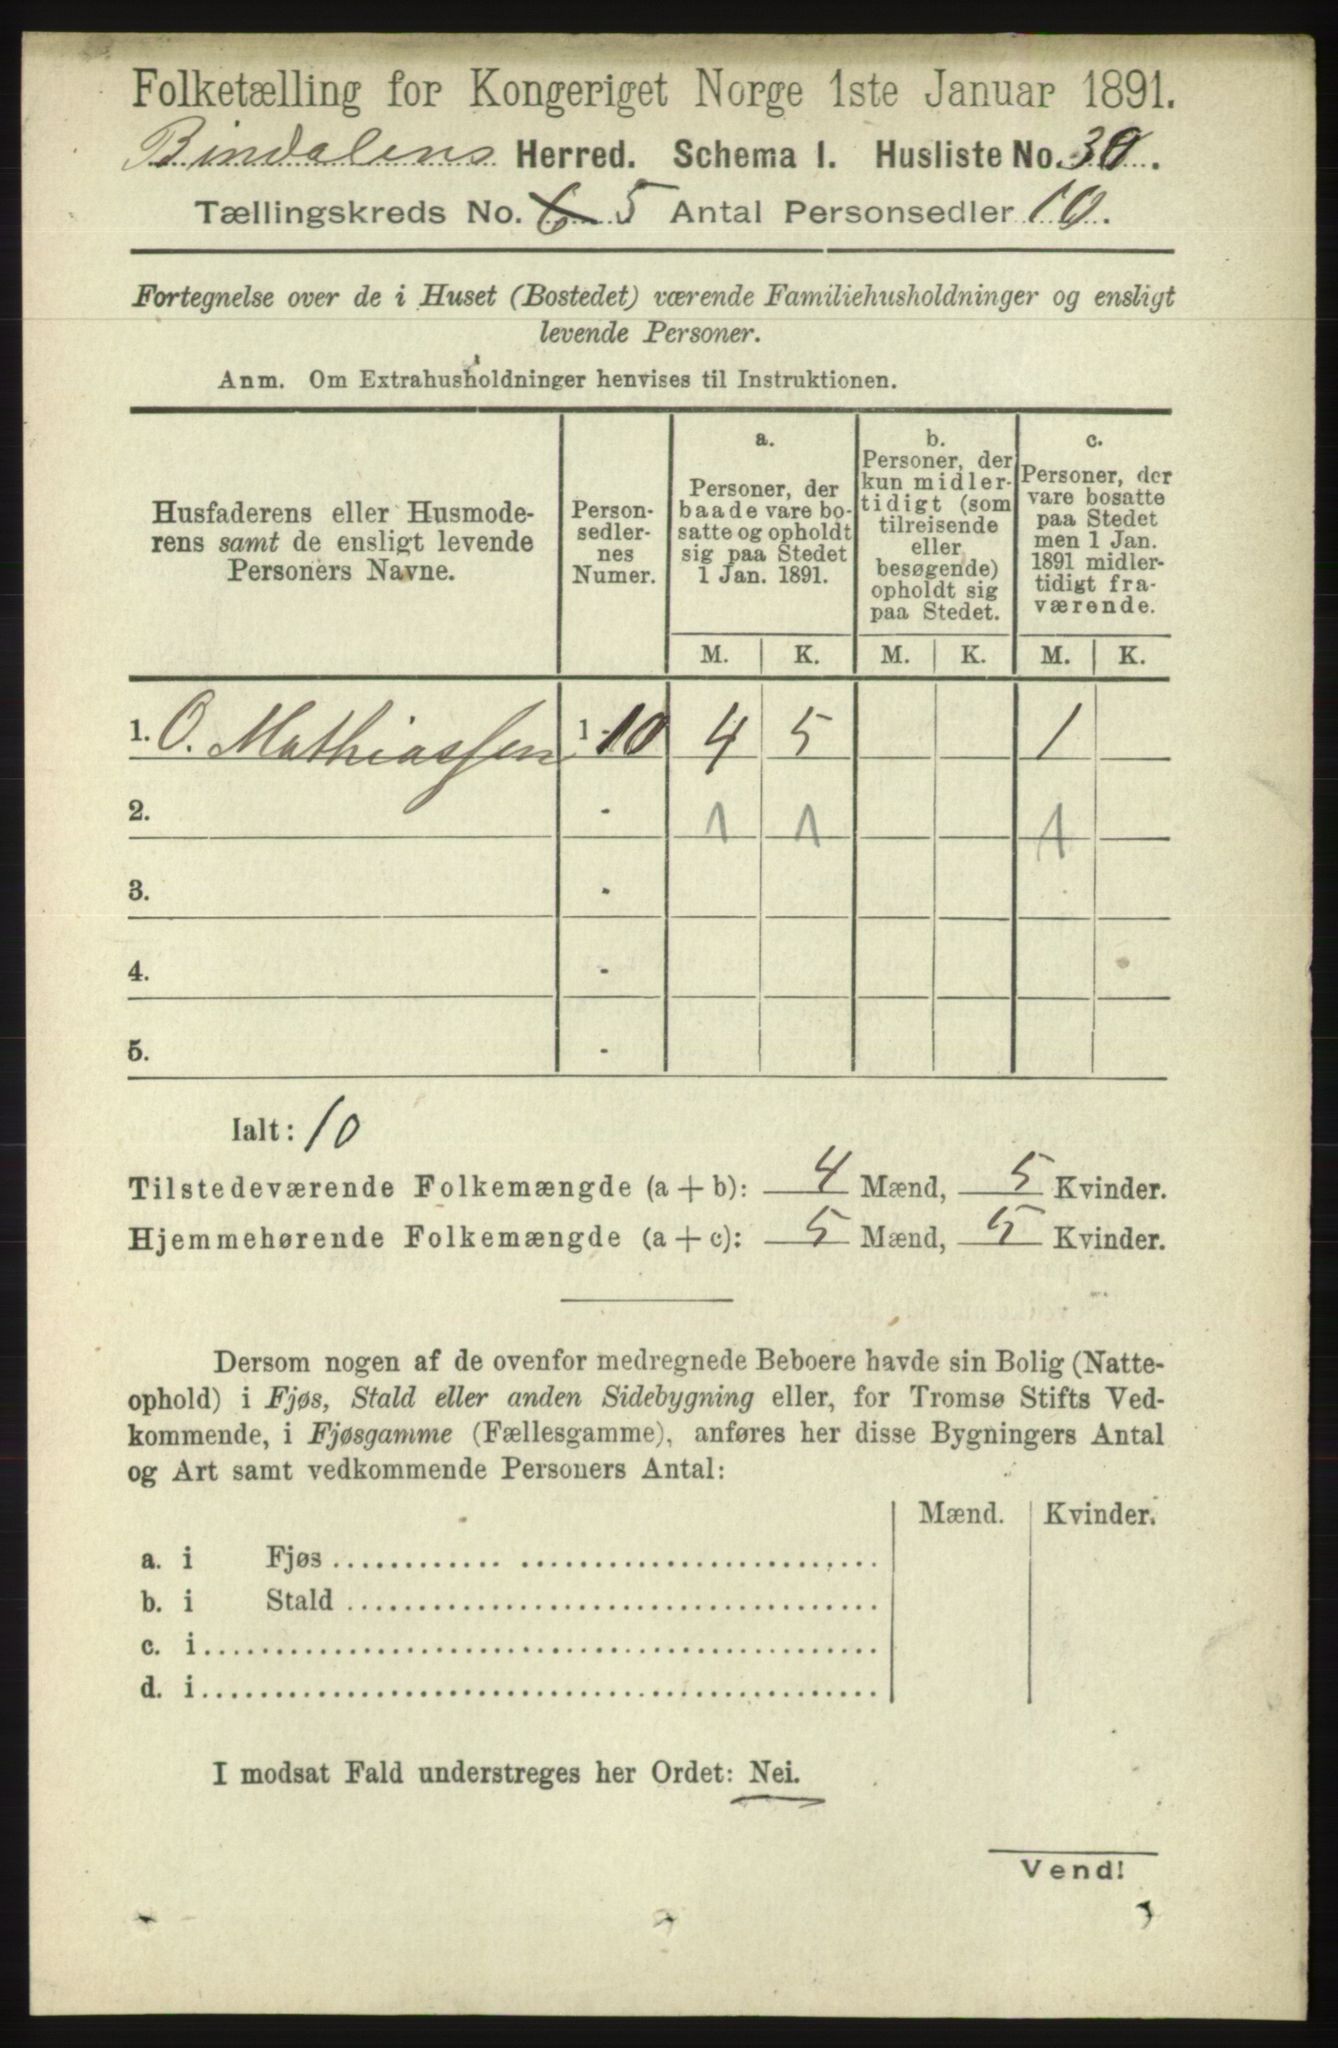 Folketælling for Kongeriget Norge 1ste Januar 1891.
Bindalens Herred. Schema I. Husliste No. 30.
Tællingskreds No. 6 5 Antal Personsedler 10.
Fortegnelse over de i Huset (Bostedet) værende Familiehusholdninger og ensligt
levende Personer.
Anm. Om Extrahusholdninger henvises til Instruktionen.
Husfaderens eller Husmode-
rens samt de ensligt levende
Personers Navne.
Person-
sedler-
nes
Numer.
a.
Personer, der
baade vare bo-
satte og opholdt
sig paa Stedet
1 Jan. 1891.
b.
Personer, der
kun midler-
tidigt (som
tilreisende
eller
besøgende)
opholdt sig
paa Stedet.
c.
Personer, der
vare bosatte
paa Stedet
men 1 Jan.
1891 midler-
tidigt fra-
værende.
M. K. M. K. M. K.
1. O. Mathiassen 1-10 4 5 1
2. - 1 1 1
3. -
4. -
5. -
Ialt: 10
Tilstedeværende Folkemængde (a + b): 4 Mænd, 5 Kvinder.
Hjemmehørende Folkemængde (a + c): 5 Mænd, 5 Kvinder.
Dersom nogen af de ovenfor medregnede Beboere havde sin Bolig (Natte-
ophold) i Fjøs, Stald eller anden Sidebygning eller, for Tromsø Stifts Ved-
kommende, i Fjøsgamme (Fællesgamme), anføres her disse Bygningers Antal
og Art samt vedkommende Personers Antal:
Mænd. Kvinder.
a. i Fjøs
b. i Stald
c. i
d. i
I modsat Fald understreges her Ordet: Nei.
Vend!